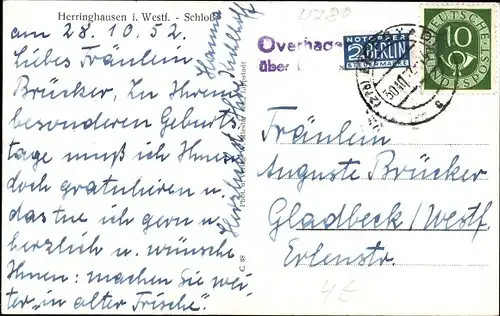 Herringhausen i. Westf. - Schloß
am 28.10.52.
Liebes Fräulein
Brücker, Zu Ihrem
besonderen Geburts
tage muß ich Ihnen
doch gratulieren u.
das tue ich gern u.
herzlich u. wünsche
Ihnen: machen Sie wei-
ter "in alter Frische".
Herzlichst Ihre
Hanna
4780
Overhage
über
NOTOPFER
2 BERLIN
STEUERMARKE
DEUTSCHE
10
BUNDESPOST
30.10.
Fräulein
Auguste Brücker
Gladbeck/Westf.
Erlenstr.
C 88
4€